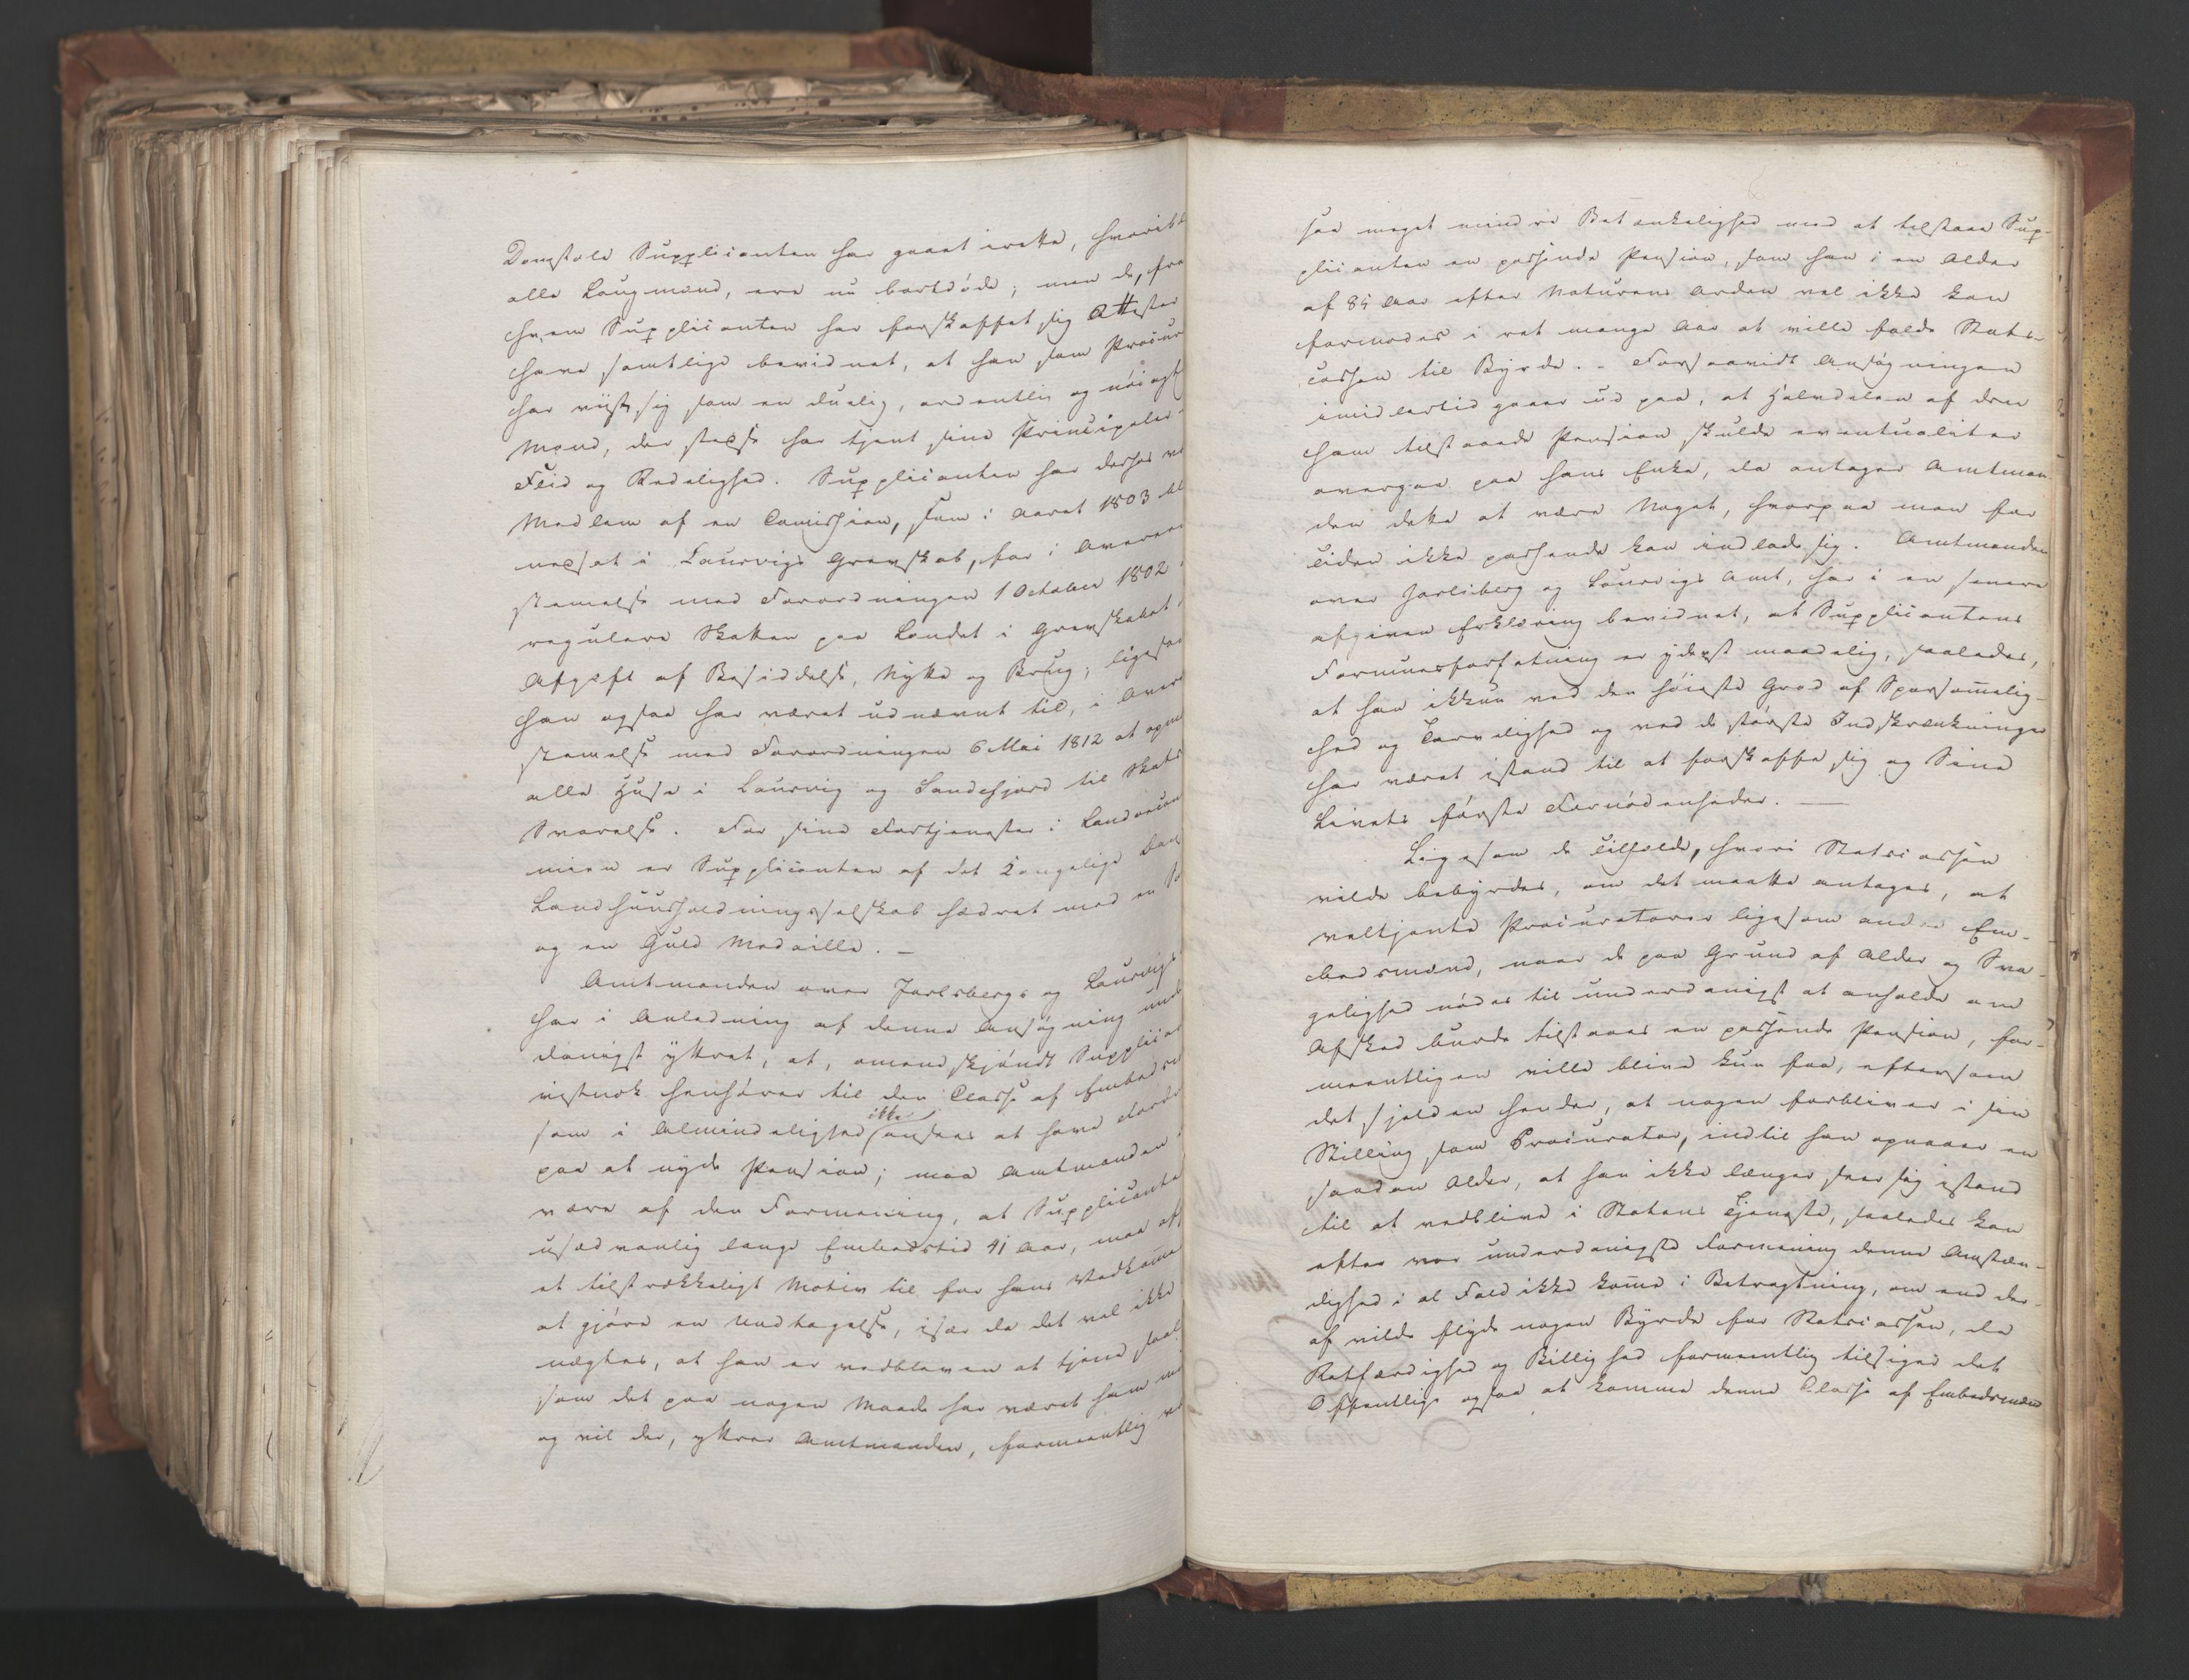 Domstole Supplicanten har gaaet irette, hvoribl
alle Laugmænd, ere nu bortdöde; men de, fra
hvem Supplicanten har forskaffet sig Attester
have samtlige bevidnet, at han som Procur
har viist sig som en duelig, ordentlig og nöiagt
Mand, der stedse har tjent sine Principaler
Flid og Redelighed. Supplicanten har desses v
Medlem af en Comission, som i Aaret 1803 bl
nedsat i Laurvigs Grevskab, for i Overeen
stemmelse med Forordningen 1 October 1802
regulere Skatten paa Landet i Grevskabet,
Afgift af Besiddelse, Nytte og Brug; ligesaa
han ogsaa har været udnævnt til, i Over
stemmelse med Forordningen 6 Mai 1812 at opm
alle Huse i Laurvig og Sandefjord til Skats
Svarelse. For sine Fortjenester i Landoecon
mien er Supplicanten af det Kongelige Dan
Landhuusholdningsselskab hædret med en Sö
og en Guld Medaille. –
Amtmanden over Jarlsbergs og Laurvigs
har i Anledning af denne Ansögning und
danigst yttret, at, omendskjöndt Supplica
vistnok henhörer til den Classe af Embedsm
som i Almindelighed ikke ansees at have Fordr
paa at nyde Pension; maa Amtmanden
være af den Formening, at Supplicante
usædvanlig lange Embedstid 41 Aar, maa aff
et tilstrækkeligt Motiv til for hans Vedkomme
at gjöre en Undtagelse, især da det vel ikke
nægtes, at han er vedbleven at tjene saal
som det paa nogen Maade har været ham mu
og vil der, yttrer Amtmanden, formeentlig v
saa meget mindre Betænkelighed med at tilstaae Sup-
plicanten en passende Pension, som han i en Alder
af 85 Aar efter Naturens Orden vel ikke kan
formodes i ret mange Aar at ville falde Stats-
cassen til Byrde. – Forsaavidt Ansögningen
imidlertid gaaer ud paa, at Halvdelen af den
ham tilstaaede Pension skulde eventualiter
overgaa paa hans Enke, da antager Amtman-
den dette at være Noget, hvorpaa man for
Tiden ikke passende kan indlade sig. Amtmanden
over Jarlsberg og Laurvigs Amt, har i en senere
afgiven Erklæring bevidnet, at Supplicantens
Formuesforfatning er yderst maadelig, saaledes,
at han ikkun ved den höieste Grad af Sparsomelig-
hed og Tarvelighed og ved de störste Indskrænkninger
har været istand til at forskaffe sig og Sine
Livets förste Fornödenheder. –
Ligesom de Tilfælde, hvori Statscassen
vilde bebyrdes, om det maatte antages, at
veltjente Procuratorer ligesom andre Em-
bedsmænd, naar de paa Grund af Alder og Sva-
gelighed nödes til underdanigst at anholde om
Afsked burde tilstaaes en passende Pension, for-
meentligen ville blive kun faa, eftersom
det sjelden hender, at nogen forbliver i sin
Stilling som Procurator, indtil han opnaaer en
saadan Alder, at han ikke længer seer sig istand
til at vedblive i Statens Tjeneste, saaledes kan
efter vor underdanigste Formening denne Omstæn-
dighed i al Fald ikke komme i Betragtning, om end der-
af vilde flyde nogen Byrde for Statscassen, da
Retfærdighed og Billighed formeentlig tilsiger det
Offentlige ogsaa at komme denne Classe af Embedsmænd